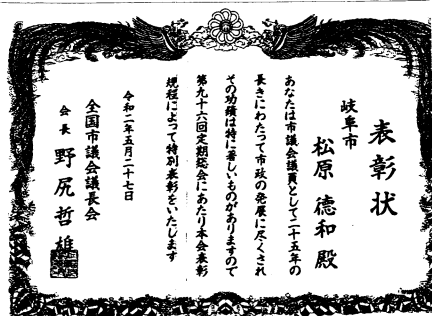 表彰状
岐阜市
松原德和殿
あなたは市議会議員として二十五年の
長きにわたって市政の発展に尽くされ
その功績は特に著しいものがありますので
第九十六回定期総会にあたり本会表彰
規程によって特別表彰をいたします
令和二年五月二十七日
全国市議会議長会
会長 野尻哲雄